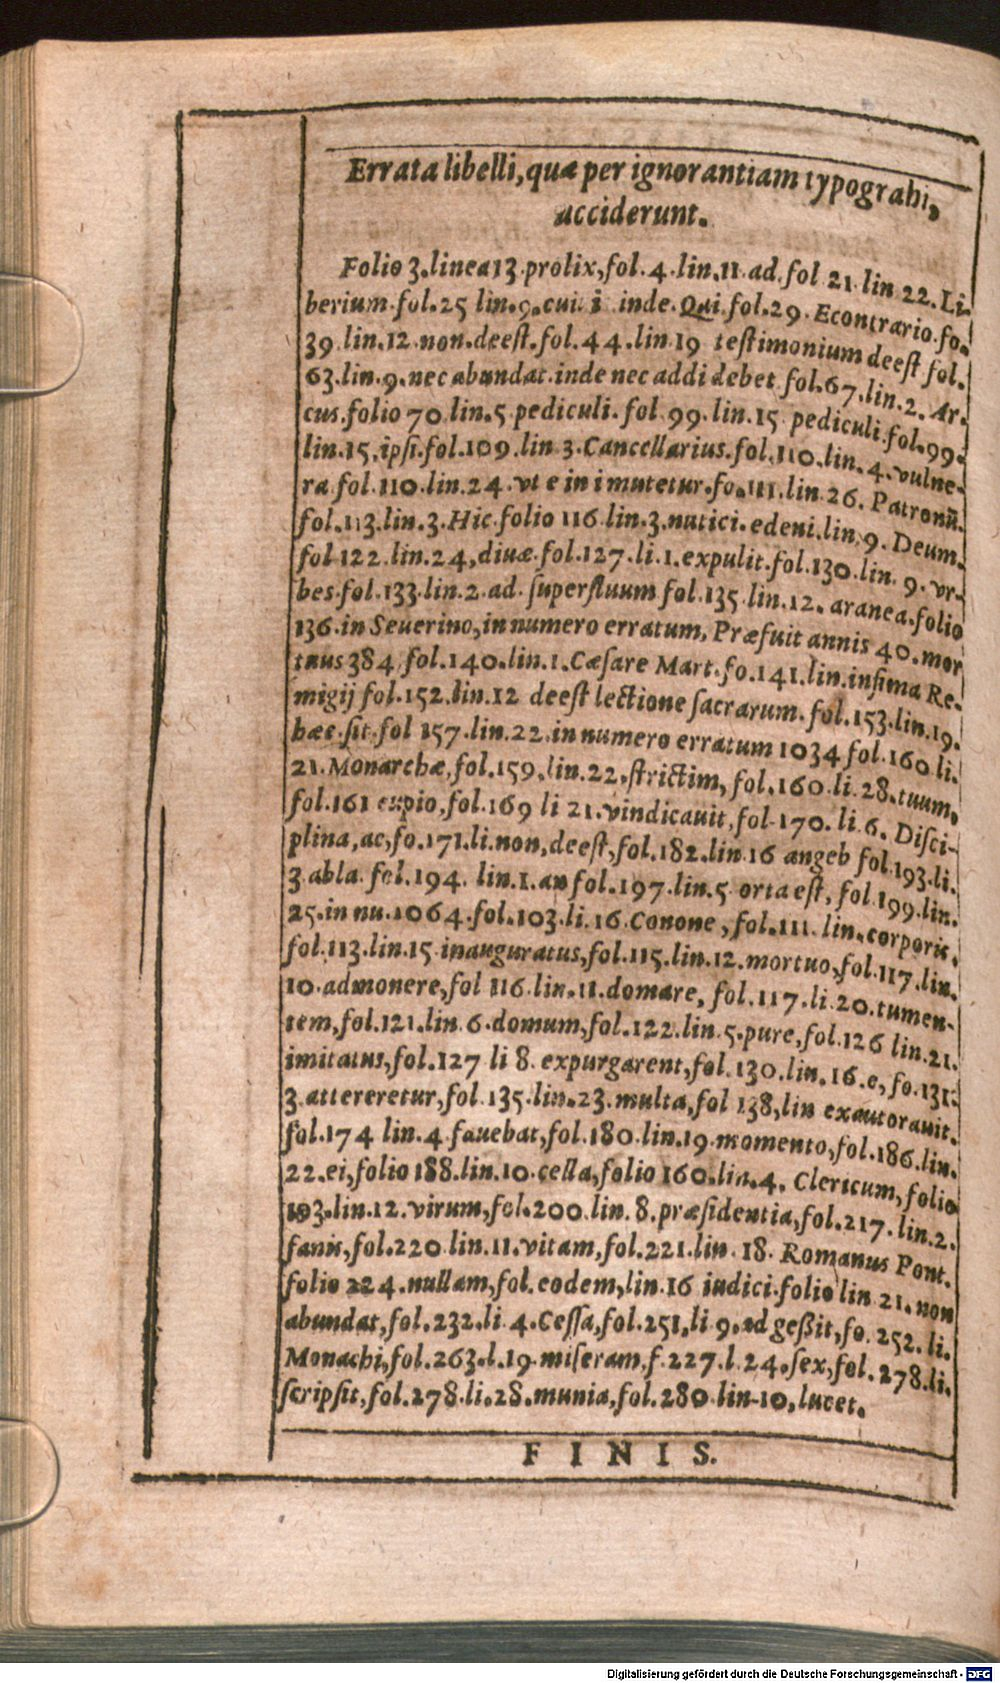 Errata libelli, quæ per ignorantiam typograhi,
acciderunt.
Folio 3. linea 13 prolix, fol. 4. lin. 11 ad. fol 21 lin 22. Li-
berium fol. 25 lin. 9. cui. i inde. Qui fol. 29. Econtrario. fo.
39. lin. 12 non. deest. fol. 44. lin 19 testimonium deest fol.
63. lin. 9. nec abundat. inde nec addi debet fol. 67. lin. 2. Ar.
cus. folio 70 lin. 5 pediculi. fol 99. lin. 15 pediculi. fol. 99.
lin. 15, ipsi. fol. 109. lin 3. Cancellarius. fol. 110. lin. 4. vulne-
ra fol. 110. lin. 24. vt e in i mutetur. fo. 111. lin. 26. Patronū.
fol. 113. lin. 3. Hic folio 116 lin. 3. nutici. edeni. lin. 9. Deum.
fol 122 lin. 24, diuæ. fol. 127. li. 1. expulit. fol. 130. lin. 9. vr-
bes. fol. 133. lin. 2 ad superfluum fol. 135 lin. 12. aranea. folio
136. in Seuerino, in numero erratum, Præfuit annis 40. mor
tuus 384 fol. 140. lin. 1. Cæsare Mart. fo. 141. lin. infima Re-
migij fol. 152. lin. 12 deest lectione sacrarum. fol. 153. lin. 19.
hæc. sit. fol 157. lin. 22. in numero erratum 1034 fol. 160 li.
21. Monarchæ, fol. 159. lin. 22. strictim, fol. 160 li. 28. tuum,
fol. 161 cupio, fol. 169 li 21. vindicauit, fol 170. li 6. Disci-
plina, ac, fo. 171. li. non, deest, fol. 182. lin 16 angeb fol. 193. li.
3. abla. fol. 194. lin. 1. an fol. 197. lin. 5 orta est, fol 199. lin.
25. in nu. 1064. fol. 103. li. 16. Conone, fol. 111. lin. corporis.
fol. 113. lin. 15 inauguratus, fol. 115. lin. 12. mortuo, fol. 117. lin.
10. admonere, fol 116. lin. 11. domare, fol. 117. li 20. tumen-
tem, fol. 121. lin. 6. domum, fol. 122. lin. 5. pure, fol. 126 lin. 21.
imitatus, fol. 127 li 8. expurgarent, fol. 130. lin. 16. e, fo. 131.
3. attereretur, fol. 135. lin. 23. multa, fol 138, lin exautorauit.
fol. 174 lin. 4 fauebat, fol. 180. lin. 19. momento, fol. 186. lin.
22. ei, folio 188. lin. 10. cella, folio 160. lin. 4. Clericum, folio
193. lin. 12. virum, fol. 200. lin. 8. præsidentia, fol. 217. lin. 2.
fanis, fol. 220. lin. 11. vitam, fol. 221. lin. 18. Romanus Pont.
folio 224. nullam, fol. eodem, lin. 16 iudici. folio lin 21. non
abundat, fol. 232. li. 4. Cessa, fol. 251, li 9. ad geßit, fo. 252. li.
Monachi, fol. 263. l. 19. miseram, f. 227. l. 24. sex, fol. 278. li.
scripsit, fol. 278. li. 28. munia, fol. 280 lin-10, lucet.
FINIS.
Digitalisierung gefördert durch die Deutsche Forschungsgemeinschaft - DFG